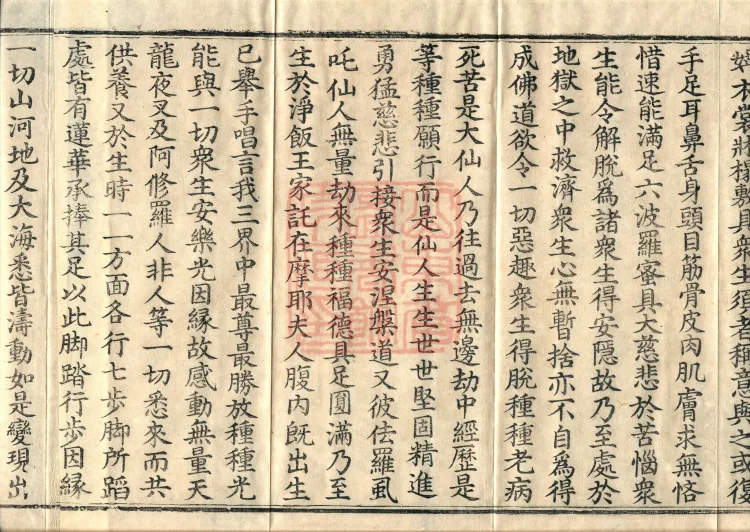 衣裳將揚敷具衆生須者稱意與之或復
手足耳鼻舌身頭目筋骨皮肉肌膚求無悋
惜速能滿足六波羅蜜具大慈悲於苦惱衆
生能令解脫爲諸衆生得安隱故乃至處於
地獄之中救濟衆生心無暫捨亦不自爲得
成佛道欲令一切惡趣衆生得脫種種老病
死苦是大仙人乃往過去無邊劫中經歷是
等種種願行而是仙人生生世世堅固精進
勇猛慈悲引接衆生安涅槃道又彼佉羅虱
吒仙人無量劫來種種福德具足圓滿乃至
生於淨飯王家託在摩耶夫人腹内既出生
已舉手唱言我三界中最尊最勝放種種光
能與一切衆生安樂光因縁故感動無量天
龍夜叉及阿修羅人非人等一切悉來而共
供養又於生時一一方面各行七步脚所蹈
處皆有蓮華承捧其足以此脚踏行步因縁
一切山河地及大海悉皆濤動如是變現出